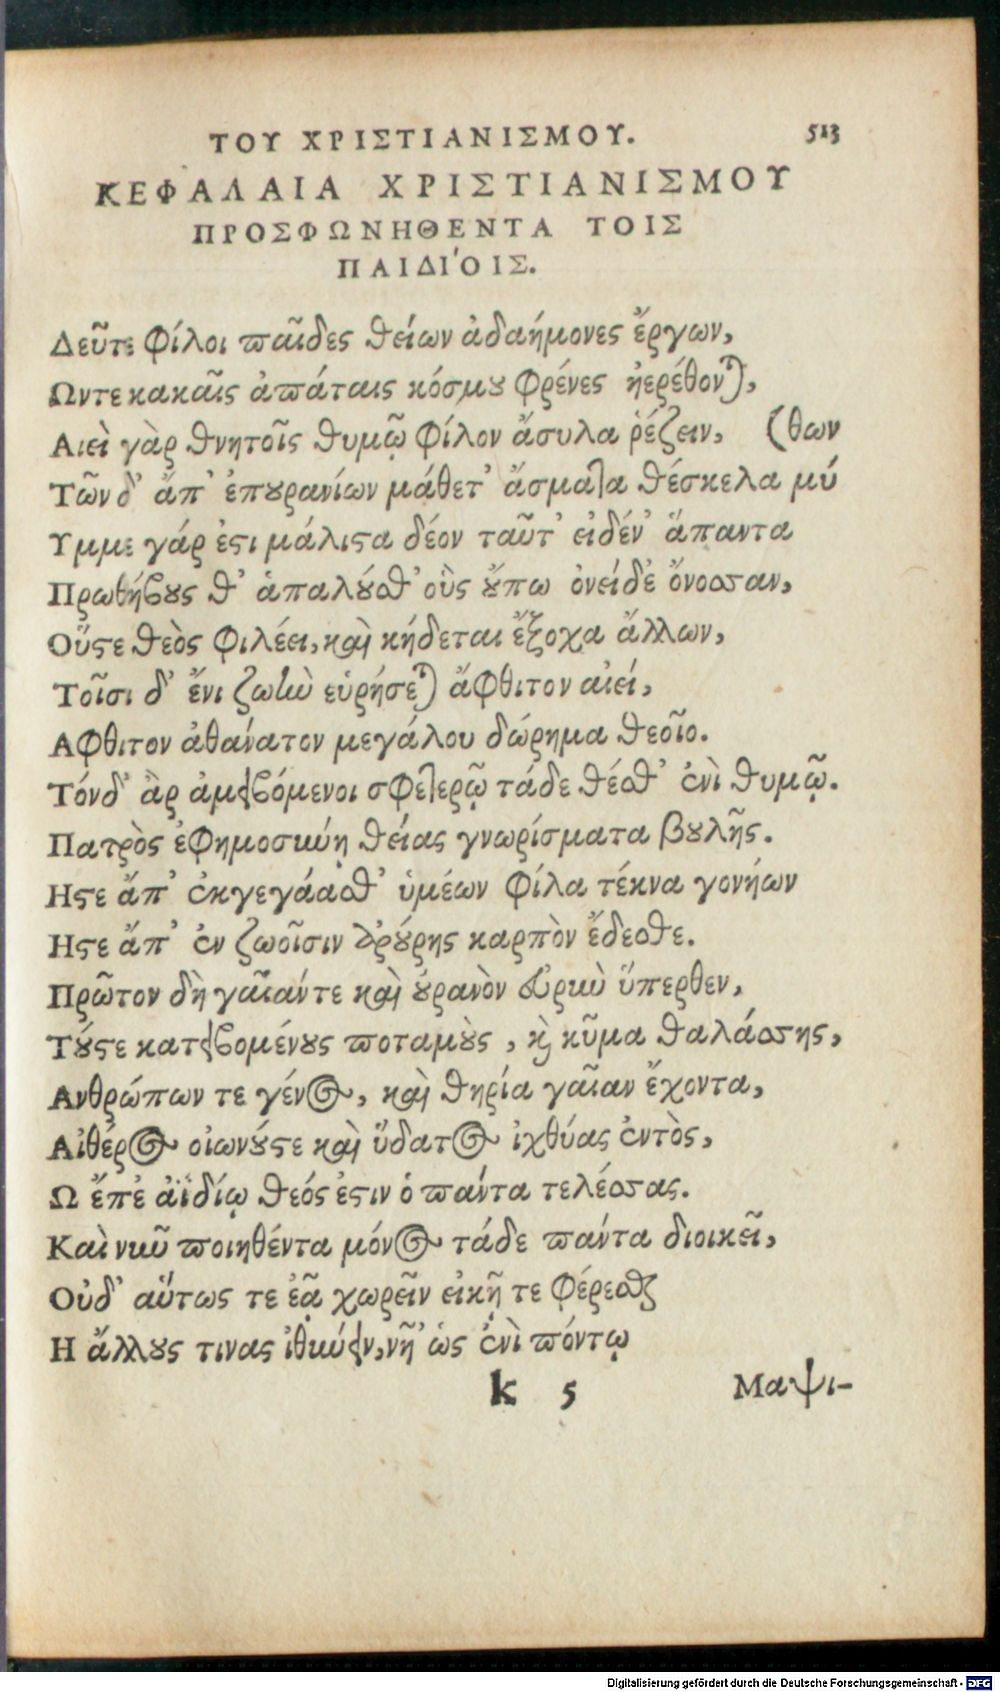 ΤΟΥ ΧΡΙΣΤΙΑΝΙΣΜΟΥ. 513
ΚΕΦΑΛΑΙΑ ΧΡΙΣΤΙΑΝΙΣΜΟΥ
ΠΡΟΣΦΩΝΗΘΕΝΤΑ ΤΟΙΣ
ΠΑΙΔΙΌΙΣ.
Δεῦτε φίλοι παῖδες θείων ἀδαήμονες ἔργων,
Ωντε κακαῖς ἀπάταις κόσμου φρένες ἠερέθονται,
Αιεὶ γὰρ θνητοῖς θυμῷ φίλον ἄσυλα ῥέζειν, (θων
Τῶν δ' ἄπ' ἐπουρανίων μάθετ' ἄσματα θέσκελα μύ
Υμμε γάρ ἐστι μάλιστα δέον ταῦτ' εἰδέν' ἅπαντα
Πρωθήβους θ' ἁπαλούσθ' οὓς οὔπω ὀνείδε' ὄνοσσαν,
Οὕστε θεὸς φιλέει, καὶ κήδεται ἔξοχα ἄλλων,
Τοῖσι δ' ἔνι ζωὴν εὑρήσεται ἄφθιτον αἰεί,
Αφθιτον ἀθανατον μεγάλου δώρημα θεοῖο.
Τόνδ' ἂρ ἀμειβόμενοι σφετερῷ τάδε θέσθ' ἐνὶ θυμῷ.
Πατρὸς ἐφημοσύνῃ θείας γνωρίσματα βουλῆς.
Ηστε ἄπ' ἐκγεγάασθ' ὑμέων φίλα τέκνα γονήων
Ηστε ἄπ' ἐν ζωοῖσιν ἀρούρης καρπὸν ἔδεσθε.
Πρῶτον δὴ γαῖαν τε καὶ οὐρανὸν εὐρὺν ὕπερθεν,
Τούστε κατειβομένους ποταμοὺς, καὶ κῦμα θαλάσσης,
Ανθρώπων τε γένος, καὶ θηρία γαῖαν ἔχοντα,
Αἰθέρος οἰωνούστε καὶ ὕδατος ἰχθύας ἐντὸς,
Ω ἔπε' ἀϊδίῳ θεός ἐστιν ὁ πάντα τελέσσας.
Καὶ νῦν ποιηθέντα μόνος τάδε πάντα διοικεῖ,
Οὐδ' αὔτως τε ἐᾷ χωρεῖν εἰκῇ τε φέρεσθαι
Η ἄλλους τινας ἰθύνειν, νῆ' ὡς ἐνὶ πόντῳ
k 5 Μαψι-
Digitalisierung gefördert durch die Deutsche Forschungsgemeinschaft - DFG